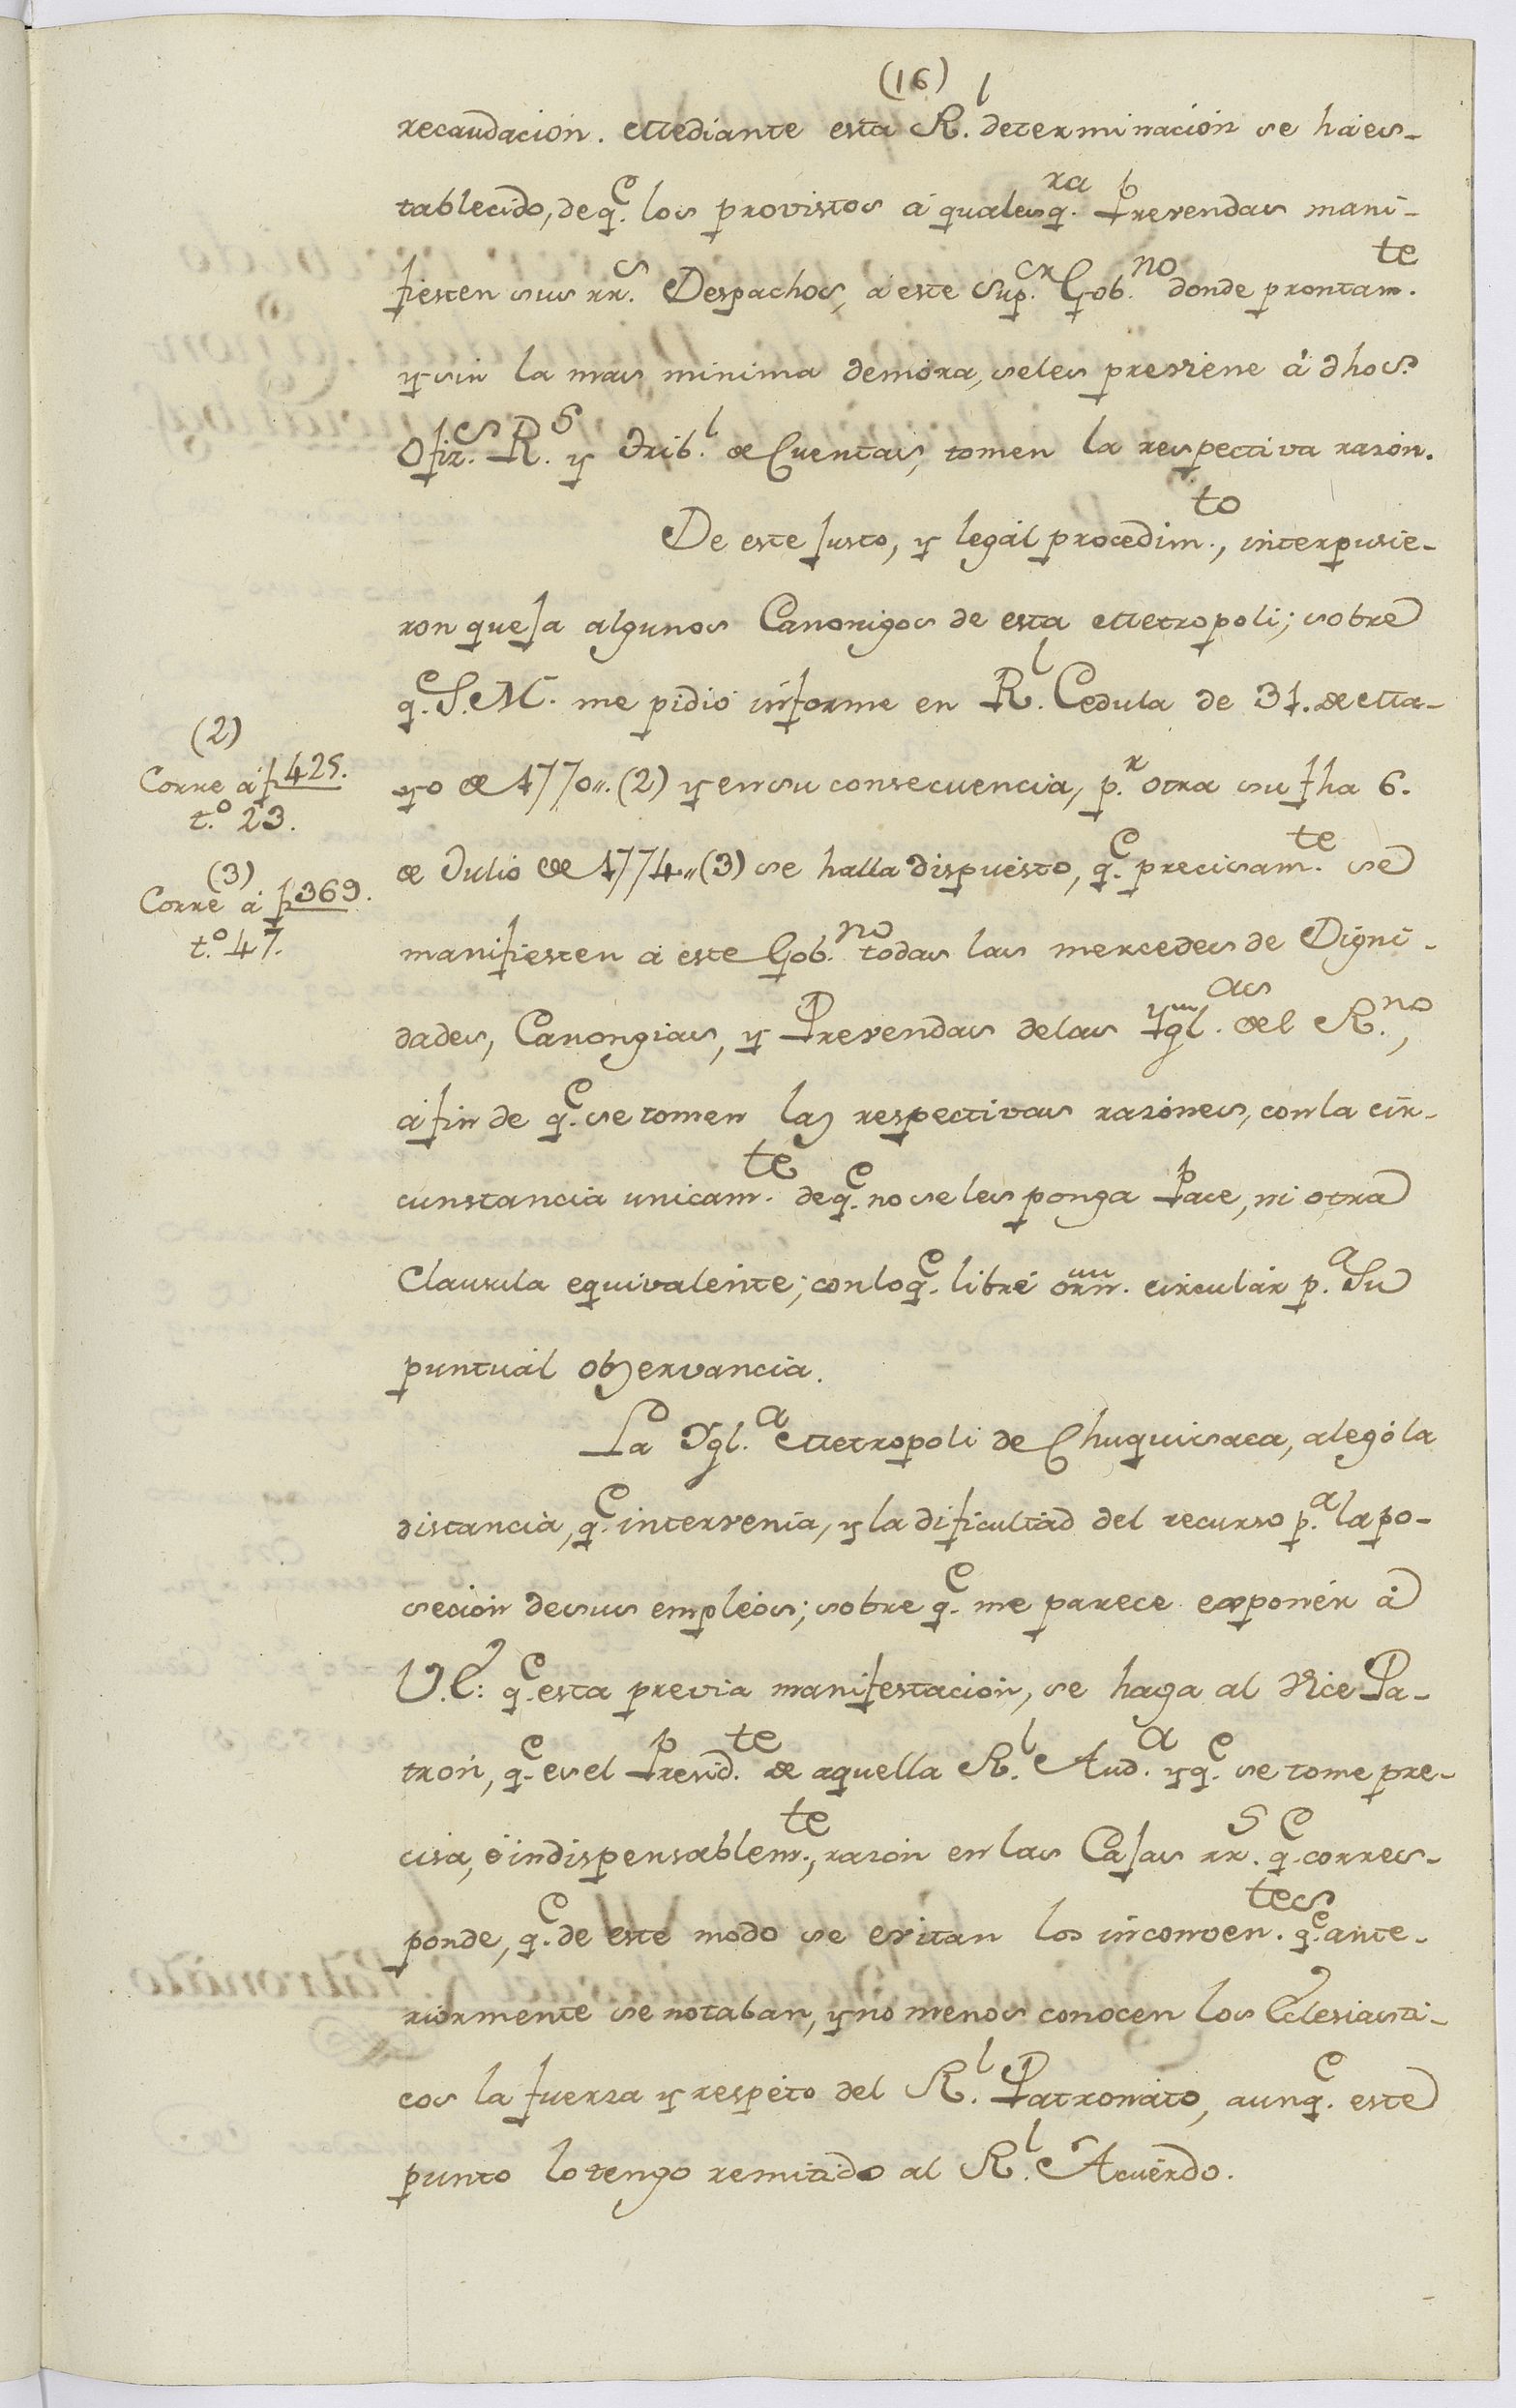 (16)
recaudacion. Mediante esta R.l determinacion se há es-
tablecido, de q.e los provistos á qualesq.ra Prevendas mani-
fiesten sus rr.s Despachos, á este Sup.er Gob.no donde prontam.te
y sin la mas minima demora, se les previene á dhos.
Ofiz.s R.s y Trib.l de Cuentas, tomen la respectiva razón.
De este justo, y legál procedim.to, interpusie-
ron queja algunos Canonigos de esta Metropoli; sobre
q.e S. M. me pidió informe en R.l Cedula de 31. de Ma-
yo de 1770,,. (2) y en su consecuencia, p.r otra su fha 6.
de Julio de 1774,, (3) se halla dispuesto, q.e precisam.te se
manifiesten á este Gob.no todas las mercedes de Digni-
dades, Canongias, y Prevendas de las Ygl.as del R.no,
á fin de q.e se tomen las respectivas razónes, con la cir-
cunstancia unicam.te de q.e no se les ponga Pace, ni otra
Clausula equivalente; con lo q.e libré orn. circulár p.a Su
puntuál observancia.
La Ygl.a Metropoli de Chuquisaca, alegó la
distancia, q.e intervenia, y la dificultad del recurso p.a la po-
secion de sus empleos; sobre q.e me parece exponér á
V.E: q.e esta previa manifestacion, se haga al Vice Pa-
tron, q.e es el Presid.te de aquella R.l Aud.a y q.e se tome pre-
cisa, é indispensablem.te, razón en las Cajas rr.s q.e corres-
ponde, q.e de este modo se evitan los inconven.tes q.e ante-
riormente se notaban, y no menos conocen los Eclesiasti-
cos la fuerza y respéto del R.l Patronáto, aunq.e este
punto lo tengo remitido al R.l Acuerdo.
(2)
Corre á f 425.
t.o 23.
(3)
Corre á f 369.
t.o 47.